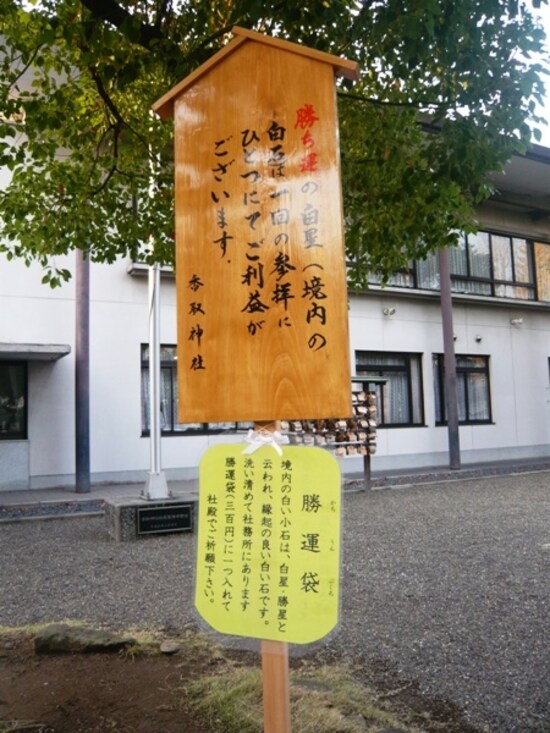 勝ち運の白星(境内の
白石は一回の参拝に
ひとつにてご利益が
ございます.
香取神社
勝運袋
かち うん ぶくろ
境内の白い小石は、白星・勝星と
云われ、縁起の良い白い石です。
洗い清めて社務所にあります
勝運袋(三百円)に一つ入れて
社殿でご祈願下さい。